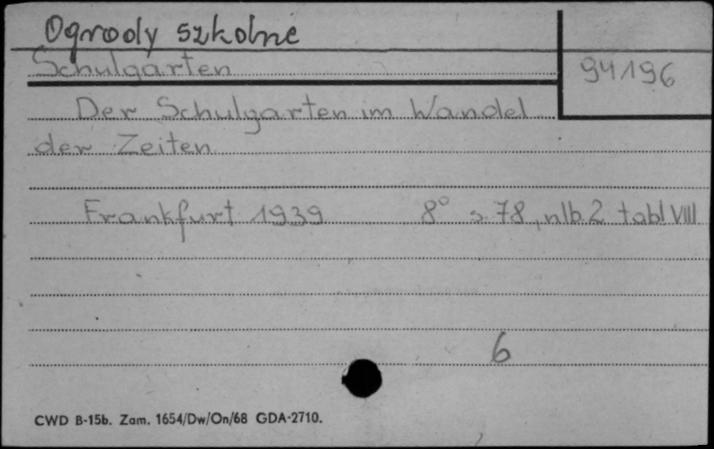 Ogrody szkolne
Schulgarten
94196
Der Schulgarten im Wandel
der Zeiten
Frankfurt 1939 8° s. 78, nlb. 2 tabl VIII
6
CWD B-15b. Zam. 1654/Dw/On/68 GDA-2710.